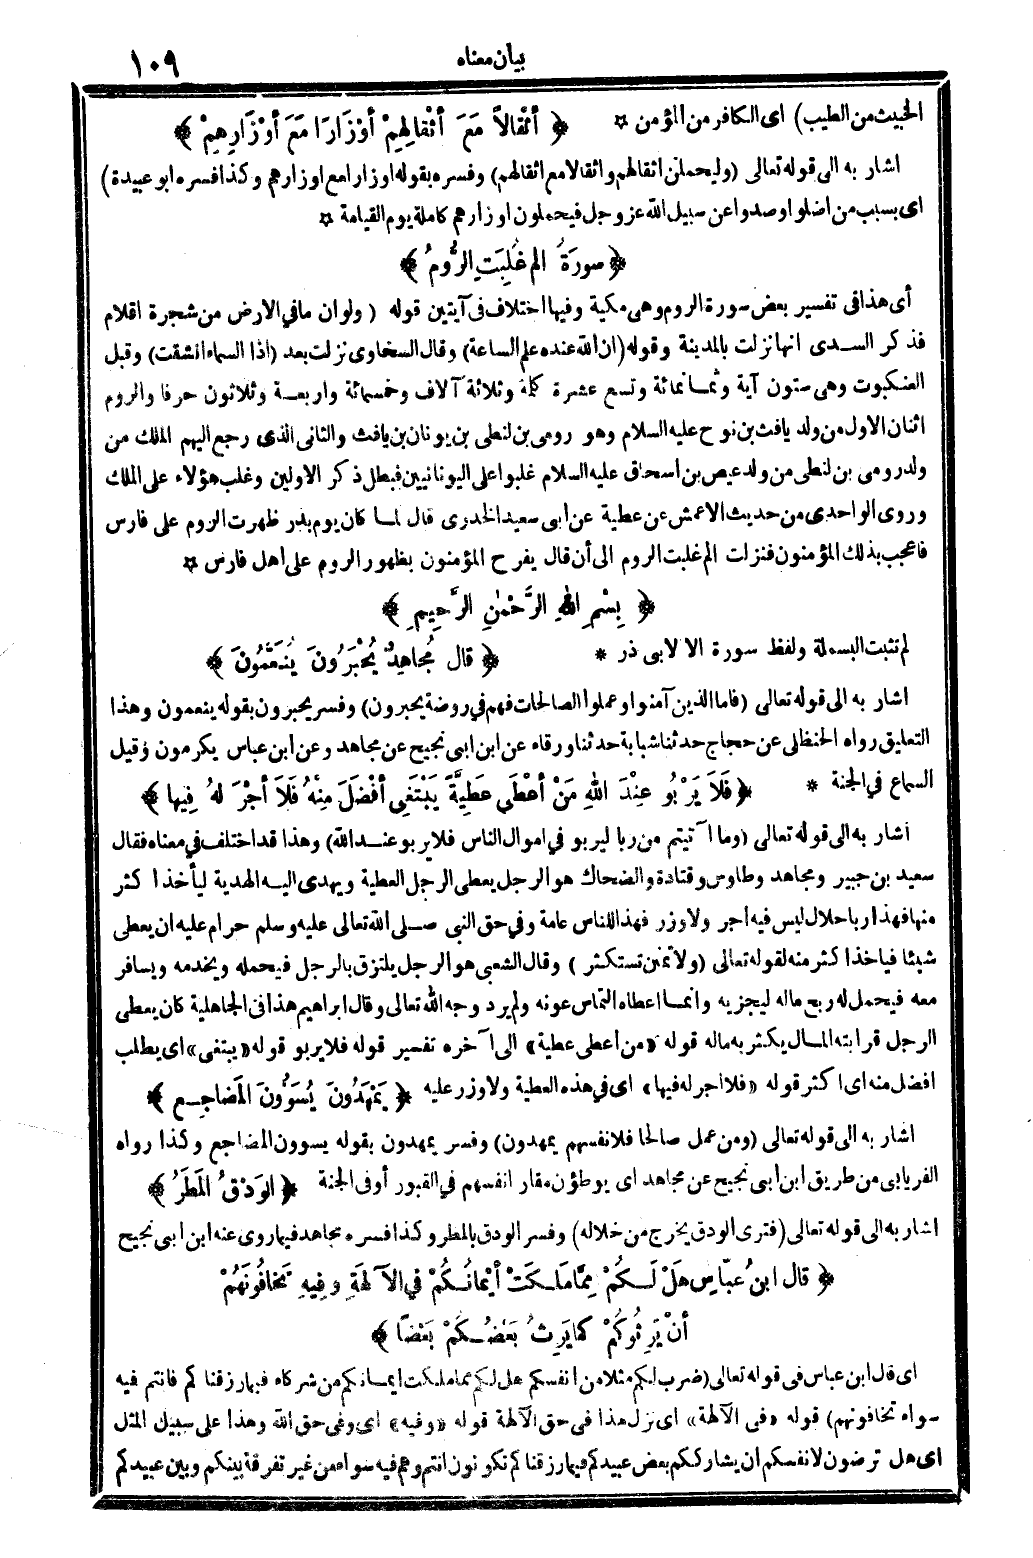 بيان معناه
١٠٩
الخبيث من الطيب) اى الكافر من المؤمن ✡ ﴿ أثْقالاً مَعَ أثْقالِهِمْ أوْزَارًا مَعَ أوْزَارِهِمْ ﴾
اشار به الى قوله تعالى (وليحملن اثقالهم واثقالا مع اثقالهم) وفسره بقوله اوزارا مع اوزارهم وكذا فسره ابو عبيدة)
اى بسبب من اضلوا وصدوا عن سبيل الله عز وجل فيحملون اوزارهم كاملة يوم القيامة ✡
﴿ سورَةُ الم غُلِبَتِ الرُّومُ ﴾
أى هذا فى تفسير بعض سورة الروم وهى مكية وفيها اختلاف فى آيتين قوله ( ولو ان ما في الارض من شجرة اقلام
فذكر السدى انها نزلت بالمدينة وقوله (ان الله عنده علم الساعة) وقال السخاوى نزلت بعد (اذا السماء انشقت) وقبل
العنكبوت وهى ستون آية وثمانمائة وتسع عشرة كلمة وثلاثة آلاف وخمسمائة واربعة وثلاثون حرفا والروم
اثنان الاول من ولد يافث بن نوح عليه السلام وهو رومى بن لنطى بن يونان بن يافث والثانى الذى رجع اليهم الملك من
ولد رومى بن لنطى من ولد عيص بن اسحاق عليه السلام غلبوا على اليونانيين فبطل ذكر الاولين وغلب هؤلاء على الملك
وروى الواحدى من حديث الاعمش عن عطية عن ابى سعيد الخدرى قال لما كان يوم بدر ظهرت الروم على فارس
فاعجب بذلك المؤمنون فنزلت الم غلبت الروم الى أن قال يفرح المؤمنون بظهور الروم على اهل فارس ✡
﴿ بِسْمِ اللهِ الرَّحْمٰنِ الرَّحِيمِ ﴾
لم تثبت البسملة ولفظ سورة الا لابى ذر * ﴿ قال مُجاهِدٌ يُحْبَرُونَ يُنَعَّمُونَ ﴾
اشار به الى قوله تعالى (فاما الذين آمنوا وعملوا الصالحات فهم في روضة يحبرون) وفسر يحبرون بقوله ينعمون وهذا
التعليق رواه الحنظلى عن حجاج حدثنا شبابة حدثنا ورقاء عن ابن ابى نجيح عن مجاهد وعن ابن عباس يكرمون وقيل
السماع في الجنة * ﴿ فَلاَ يَرْبُو عِنْدَ اللهِ مَنْ أعْطَى عَطِيَّةً يَبْتَغِى أفْضَلَ مِنْهُ فَلَا أجْرَ لهُ فِيها ﴾
أشار به الى قوله تعالى (وما آتيتم من ربا ليربو في اموال الناس فلا يربو عند الله) وهذا قد اختلف في معناه فقال
سعيد بن جبير ومجاهد وطاوس وقتادة والضحاك هو الرجل يعطى الرجل العطية ويهدى اليه الهدية ليأخذا كثر
منها فهذا ربا حلال ليس فيه أجر ولا وزر فهذا للناس عامة وفي حق النبى صلى الله تعالى عليه وسلم حرام عليه ان يعطى
شيئا فياخذا كثر منه لقوله تعالى (ولا تمنن تستكثر ) وقال الشعبى هو الرجل يلتزق بالرجل فيحمله ويخدمه ويسافر
معه فيحمل له ربع ماله ليجزيه وانما اعطاه التماس عونه ولم يرد وجه الله تعالى وقال ابراهيم هذا فى الجاهلية كان يعطى
الرجل قرابته المال يكثر به ماله قوله «من أعطى عطية» الى آخره تفسير قوله فلا يربو قوله «يبتغى» اى يطلب
افضل منه اى اكثر قوله «فلا اجر له فيها» اى في هذه العطية ولا وزر عليه ﴿ يَمْهَدُونَ يُسَوُّونَ المَضاجِع ﴾
اشار به الى قوله تعالى (ومن عمل صالحا فلانفسهم يمهدون) وفسر يمهدون بقوله يسوون المضاجع وكذا رواه
الفريابى من طريق ابن ابى نجيح عن مجاهد اى يوطؤن مقار انفسهم في القبور أو فى الجنة ﴿ الوَدْقُ المَطَرُ ﴾
اشار به الى قوله تعالى (فترى الودق يخرج من خلاله) وفسر الودق بالمطر وكذا فسره مجاهد فيما روى عنه ابن ابى نجيح
﴿ قال ابنُ عبَّاسٍ هَلْ لَكُمْ مِمَّا مَلَكَتْ أيْمانُكُمْ في الآلِهَةِ وفِيهِ تَخافُونَهُمْ
أنْ يَرِثُوكُمْ كما يَرِثُ بَعْضُكُمْ بَعْضًا ﴾
اى قال ابن عباس فى قوله تعالى (ضرب لكم مثلا من انفسكم هل لكم مما ملكت ايمانكم من شركاء فيما رزقناكم فانتم فيه
سواء تخافونهم) قوله «فى الآلهة» اى نزل هذا فى حق الآلهة قوله «وفيه» اى وفى حق الله وهذا على سبيل المثل
اى هل ترضون لانفسكم ان يشارككم بعض عبيدكم فيما رزقناكم تكونون انتم وهم فيه سواء من غير تفرقة بينكم وبين عبيدكم